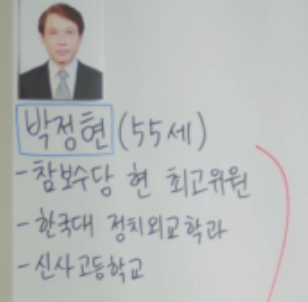 박정현 (55세)
- 참보수당 현 최고위원
- 한국대 정치외교학과
- 신사고등학교